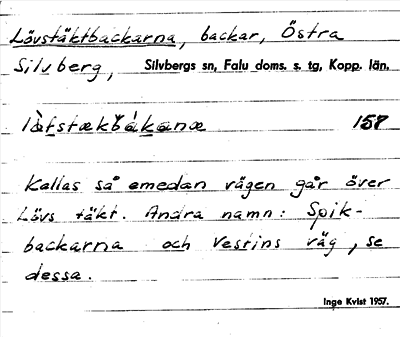 Lövstäktbackarna, backar, Östra
Silvberg, Silvbergs sn, Falu doms. s. tg, Kopp. län.
158
Kallas så emedan vägen går över
Lövs täkt. Andra namn: Spik-
backarna och Vestins väg, se
dessa.
Inge Kvist 1957.